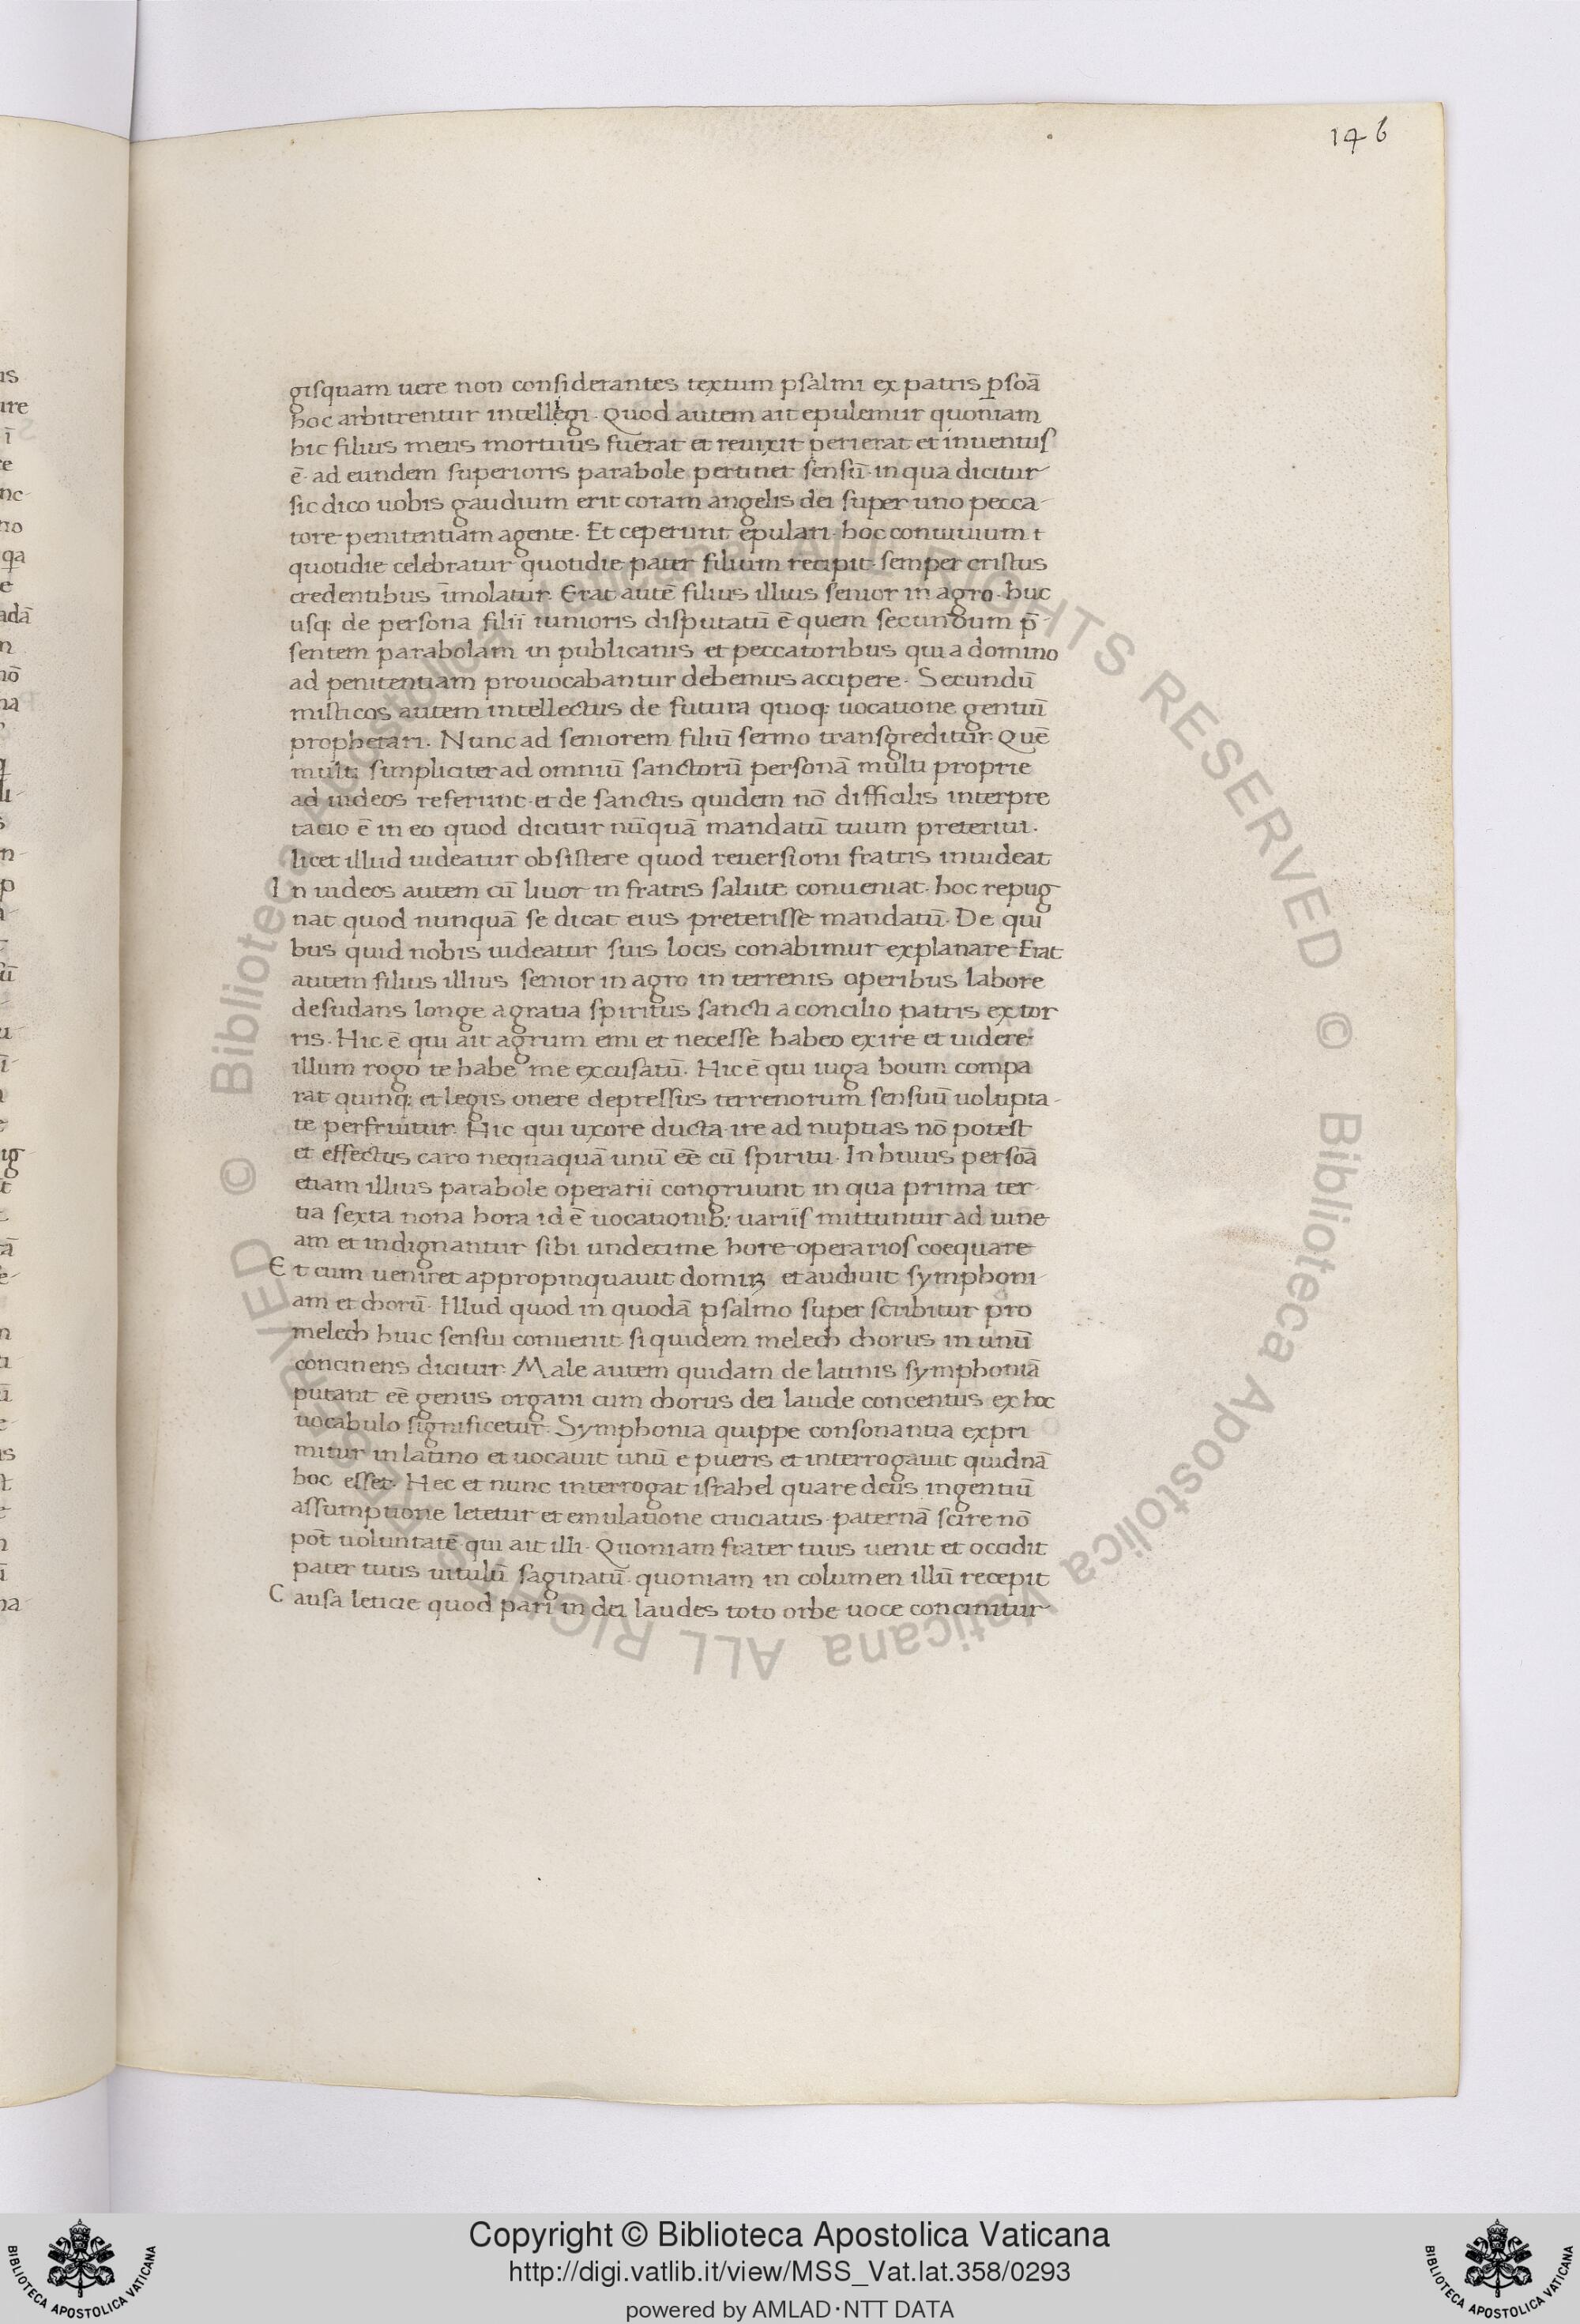 146
gisquam uere non considerantes textum psalmi ex patris p̲soā
hoc arbitrentur intellegi. Quod autem ait epulemur quoniam
hic filius meus mortuus fuerat et reuixit perierat et inuentus
ē. ad eundem superioris parabole pertinet sensū. in qua dicitur
sic dico uobis gaudium erit coram angelis dei super uno pecca-
tore penitentiam agente. Et ceperunt epulari. hoc conuiuium t
quotidie celebratur quotidie pater filium recipit. semper cristus
credentibus īmolatur. Erat autē filius illius senior in agro. huc
usq: de persona filii iunioris disputatū ē quem secundum p̄-
sentem parabolam in publicanis et peccatoribus qui a domino
ad penitentiam prouocabantur debemus accipere. Secundū
misticos autem intellectus de futura quoq: uocatione gentiū
prophetari. Nunc ad seniorem filiū sermo transgreditur. Quē
multi simpliciter ad omniū sanctorū personā multi proprie
ad iudeos referunt. et de sanctis quidem nō difficilis interpre
tatio ē in eo quod dicitur nūquā mandatū tuum preteriui.
licet illud uideatur obsistere quod reuersioni fratris inuideat
In iudeos autem cū liuor in fratris salute conueniat. hoc repug
nat quod nunquā se dicat eius preterisse mandatū. De qui
bus quid nobis uideatur suis locis conabimur explanare Erat
autem filius illius senior in agro in terrenis operibus labore
desudans longe a gratia spiritus sancti a concilio patris extor
ris. Hic ē qui ait agrum emi et necesse habeo exire et uidere
illum rogo te habe me excusatū. Hic ē qui iuga boum compa
rat quinq: et legis onere depressus terrenorum sensuū uolupta-
te perfruitur. Hic qui uxore ducta ire ad nuptias nō potest
et effectus caro nequaquā unū eē cū spiritu. In huius persoā
etiam illius parabole operarii congruunt in qua prima ter
tia sexta nona hora id ē uocationib: uariis mittuntur ad uine
am et indignantur sibi undecime hore operarios coequare
Et cum ueniret appropinquauit domiꝫ et audiuit symphoni-
am et chorū. Illud quod in quodā psalmo super scribitur pro
melech huic sensui conuenit. siquidem melech chorus in unū
concinens dicitur. Male autem quidam de latinis symphoniā
putant eē genus organi cum chorus dei laude concentus ex hoc
uocabulo significetur. Symphonia quippe consonantia expri
mitur in latino et uocauit unū e pueris et interrogauit quidnā
hoc esset. Hec et nunc interrogat israhel quare deus in gentiū
assumptione letetur et emulatione cruciatus. paternā scire nō
pōt uoluntatē qui ait illi. Quoniam frater tuus uenit et occidit
pater tuus uitulū saginatū. quoniam in columen illū recepit
Causa leticie quod pari in dei laudes toto orbe uoce concinitur
Copyright © Biblioteca Apostolica Vaticana
http://digi.vatlib.it/view/MSS_Vat.lat.358/0293
powered by AMLAD·NTT DATA